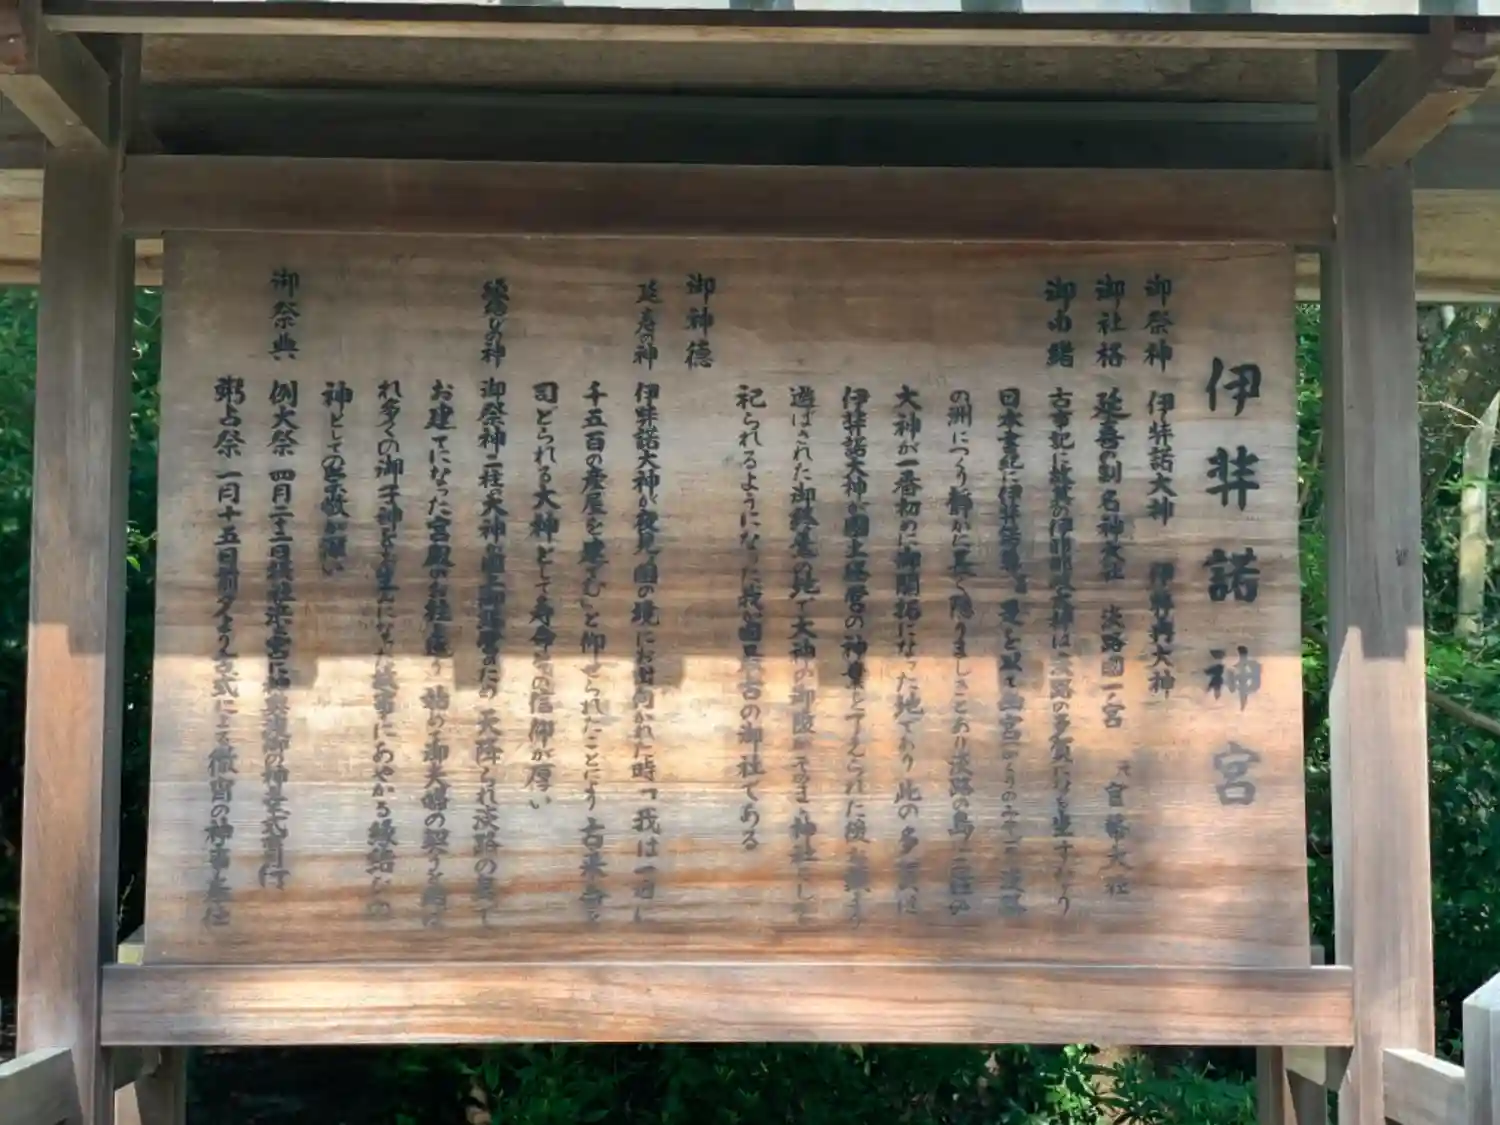 伊弉諾神宮
御祭神 伊弉諾大神 伊弉冉大神
御社格 延喜の制名神大社 淡路國一宮 元官幣大社
御由緒 古事記に 伊邪那岐大神は淡路の多賀になも坐すなり
日本書紀に伊弉諾尊 是を以て 幽宮 淡路
の洲につくり静かに長く隠りましきとあり淡路の島は二柱の
大神が一番初めに御開拓になった地であり此の多賀は
伊弉諾大神が國土経営の神業を了えられた後お鎮まり
遊ばされた御終焉の地で大神の御陵がそのまゝ神社として
祀られるようになった我が国最古の御社である
御神徳
延寿の神 伊弉諾大神が黄泉国の境にお出向かれた時「我は一日に
千五百の産屋を建てむ」と仰せられたことにより古来命を
司どられる大神として寿命 の信仰が厚い
縁結びの神 御祭神二柱の大神は國土御経営のため天降られ淡路の島で
お建てになった宮殿のお柱を廻り始めて御夫婦の契りを結ば
れ多くの御子神をお生みになった故事にあやかる縁結びの
神としての崇敬が深い
御祭典 例大祭 四月二十二日 濱之宮に神輿渡御の神幸式斎行
粥占祭 一月十五日前夕より古式による徹宵の神事を奉仕